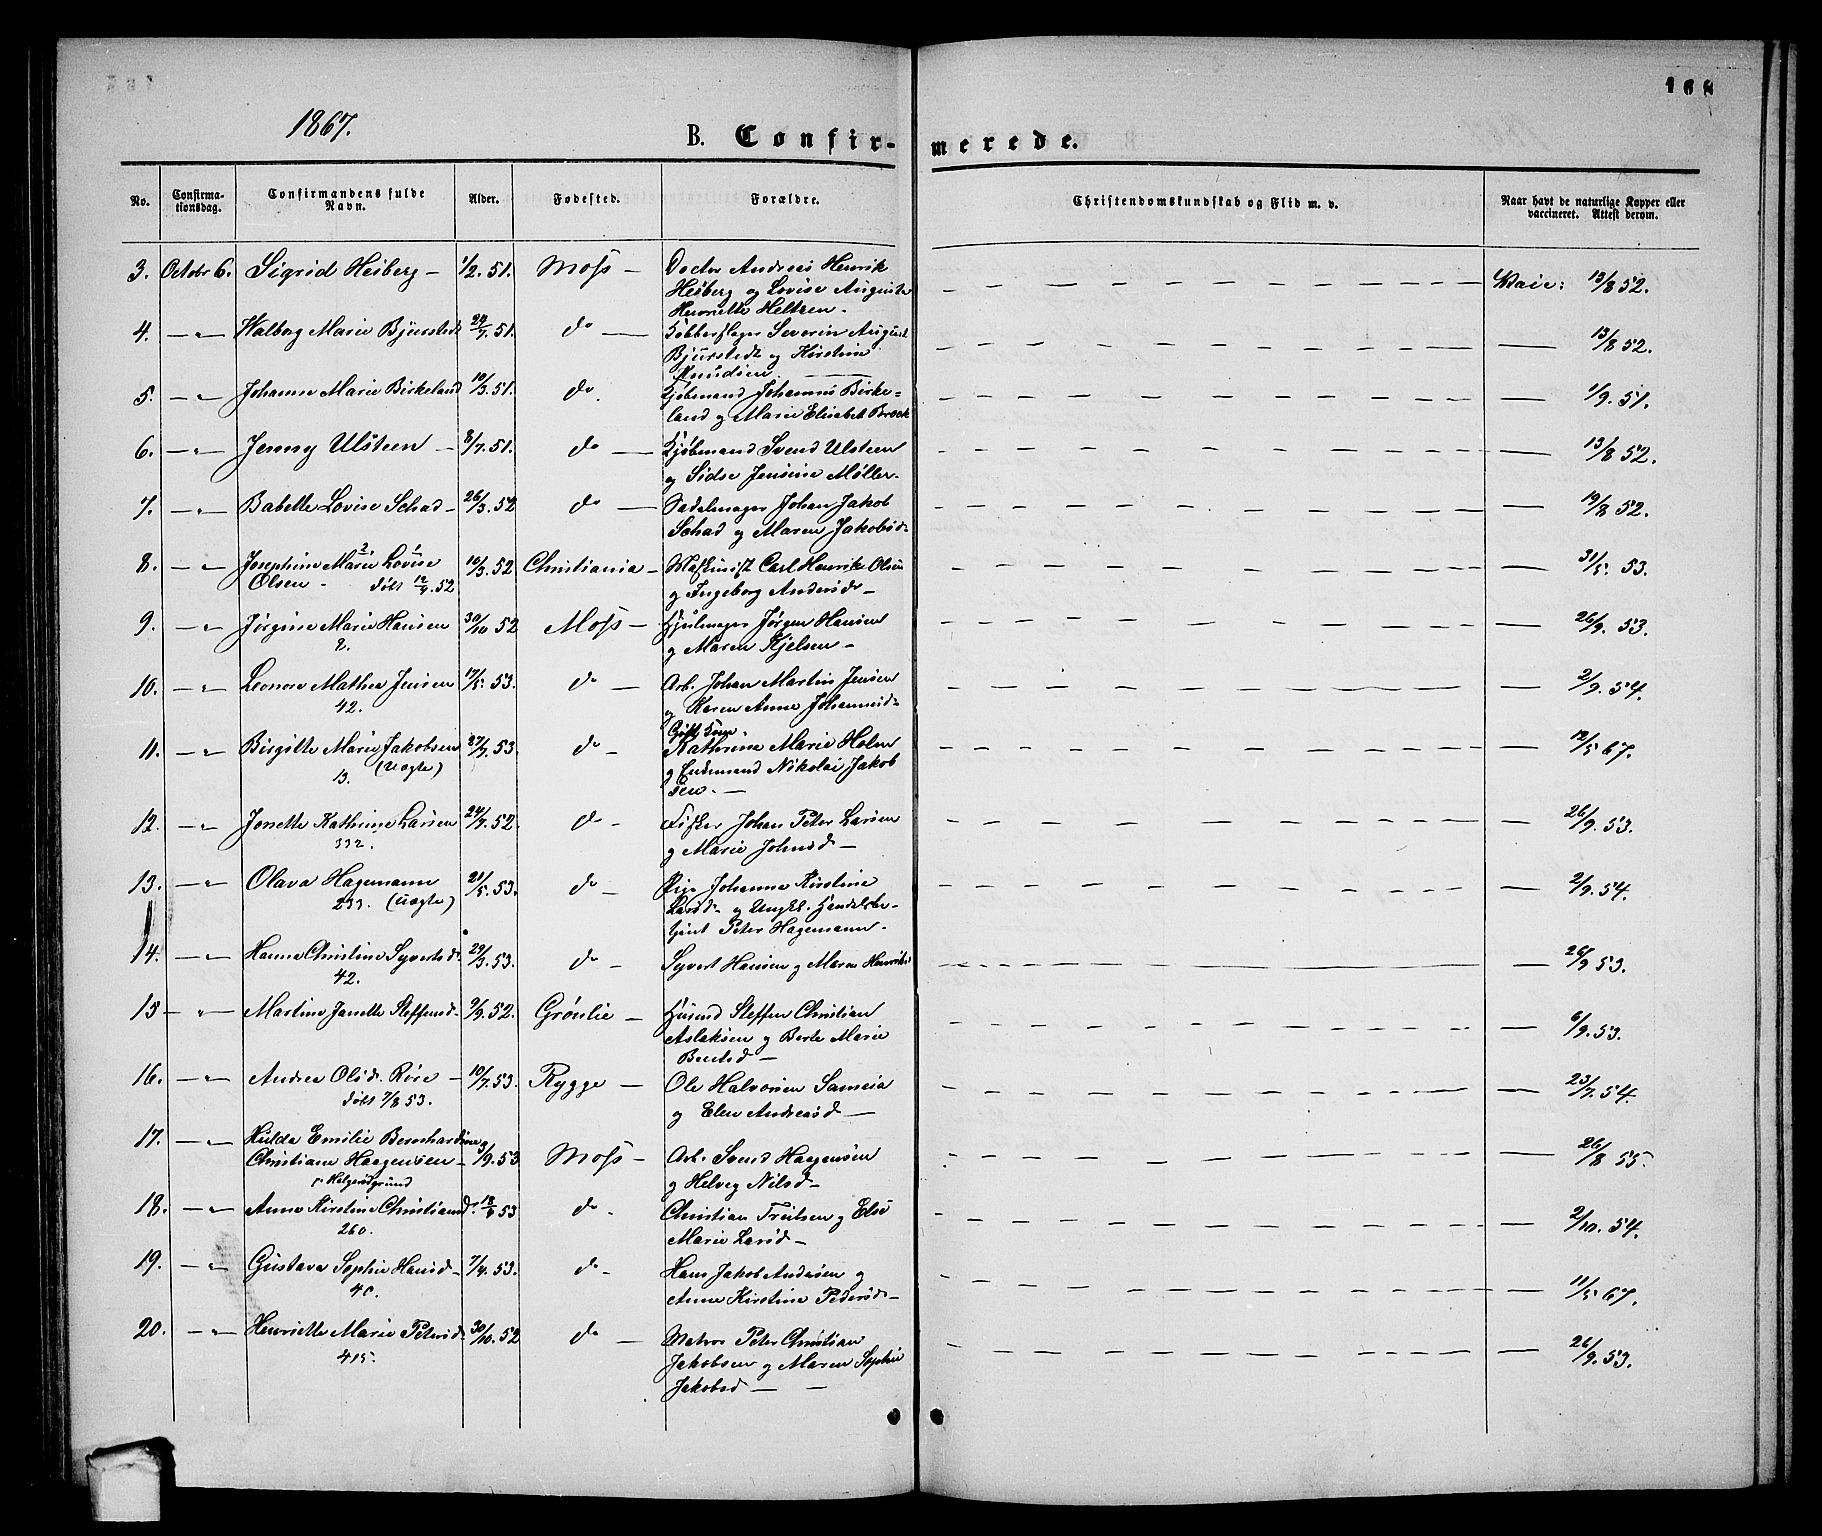 168
1867.
B. Confir-merede.
No. Confirma-tionsdag. Confirmandens fulde Navn. Alder. Fødested. Forældre. Christendomskundskab og Flid m. v. Naar havt de naturlige Kopper eller vaccineret. Attest derom.
3. Octobr 6. Sigrid Heiberg — 1/2. 51. Moss — Doctor Andreas Henrik
Heiberg og Lovise Augusta
Henriette Heltzen. — Vacc: 13/8 52.
4. — „ Walborg Marie Bjurstedt 24/7. 51. do — Kobberslager Severin August
Bjurstedt og Kirstine
Knudsen — 13/8 52.
5. — „ Johanne Marie Birkeland 10/3. 51. do. Kjøbmand Johannes Birke-
land og Marie Elisabet Brock — 1/9. 51.
6. — „ Jenny Ulsteen — 8/7. 51. do — Kjøbmand Svend Ulsteen
og Sidse Jensine Møller. — 13/8 52.
7. — „ Babette Lovise Schad — 26/3. 52 do — Sadelmager Johan Jakob
Schad og Maren Jakobsd — 19/8 52.
8. — „ Josephine Marie 2 Lovise 1
Olsen — døbt 12/4. 52 10/3. 52 Christiania — Maskinist Carl Henrik Olsen
og Ingeborg Andersd — 31/5. 53.
9. — „ Jørgine Marie Hansen 30/10 52 Moss — Hjulmager Jørgen Hansen
2. og Maren Kjelsen — 26/9. 53.
10. — „ Leonore Mathea Jensen 17/5. 53. do — Arb. Johan Martin Jensen
42. og Karen Anne Johannesd — 2/9. 54.
11. — „ Birgitte Marie Jakobsen 27/7. 53. do — Gift Kone
(uægte) Kathrine Marie Holm
13. og Enkemand Nikolai Jakob
sen. — 12/5 67.
12. — „ Jonette Kathrine Larsen 24/7. 52. do — Fisker Johan Peter Larsen
332. og Marie Johnsd — 26/9. 53.
13. — „ Olava Hagemann 21/5. 53. do — Pige Johanne Kirstine
233. (uægte) Larsd — og Ungk. Handelsbe-
tjent Peter Hagemann. — 2/9. 54.
14. — „ Hanna Christine Syvertsd 29/3. 53. do — Syvert Hansen og Maren Henriksd
42. — 26/9 53.
15 — „ Martine Janette Steffensd. 9/9. 52. Grønlie — Husmd Steffen Christian
Aslaksen og Berte Marie
Bentsd — 6/9. 53.
16. — „ Andrea Olsd. Röre — 10/7. 53. Rygge — Ole Halvorsen Sameia
døbt 7/8 53. og Elen Andreasd — 23/7. 54.
17. — „ Hulda Emilie Bernhardine
Christiane Haagensen — 3/9. 53 Moss — Arb. Svend Haagensen
p. Helgerødgrund og Helveg Nilsd — 26/8 55.
18. — „ Anne Kirstine Christiansd. 18/4 53 do — Christian Troilsen og Else
260. Marie Larsd — 2/10. 54.
19. — „ Gustava Sophie Hansd — 7/4. 53. do — Hans Jakob Andersen og
40. Anne Kirstine Pedersd — 11/5 67.
20. — „ Henriette Marie Petersd. 30/10. 52 do — Matros Peter Christian
415. Jakobsen og Maren Sophie
Jakobsd — 26/9. 53.